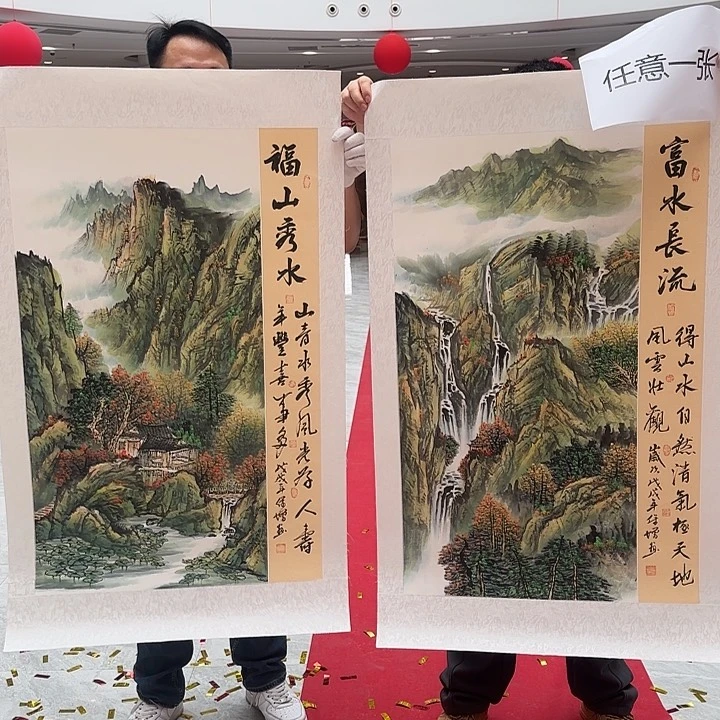 任意一张
福山秀水
山青水秀風光好人壽
年豐喜事多戊戌年
富水長流
得山水自然清氣極天地
風雲壯觀歲次戊戌年